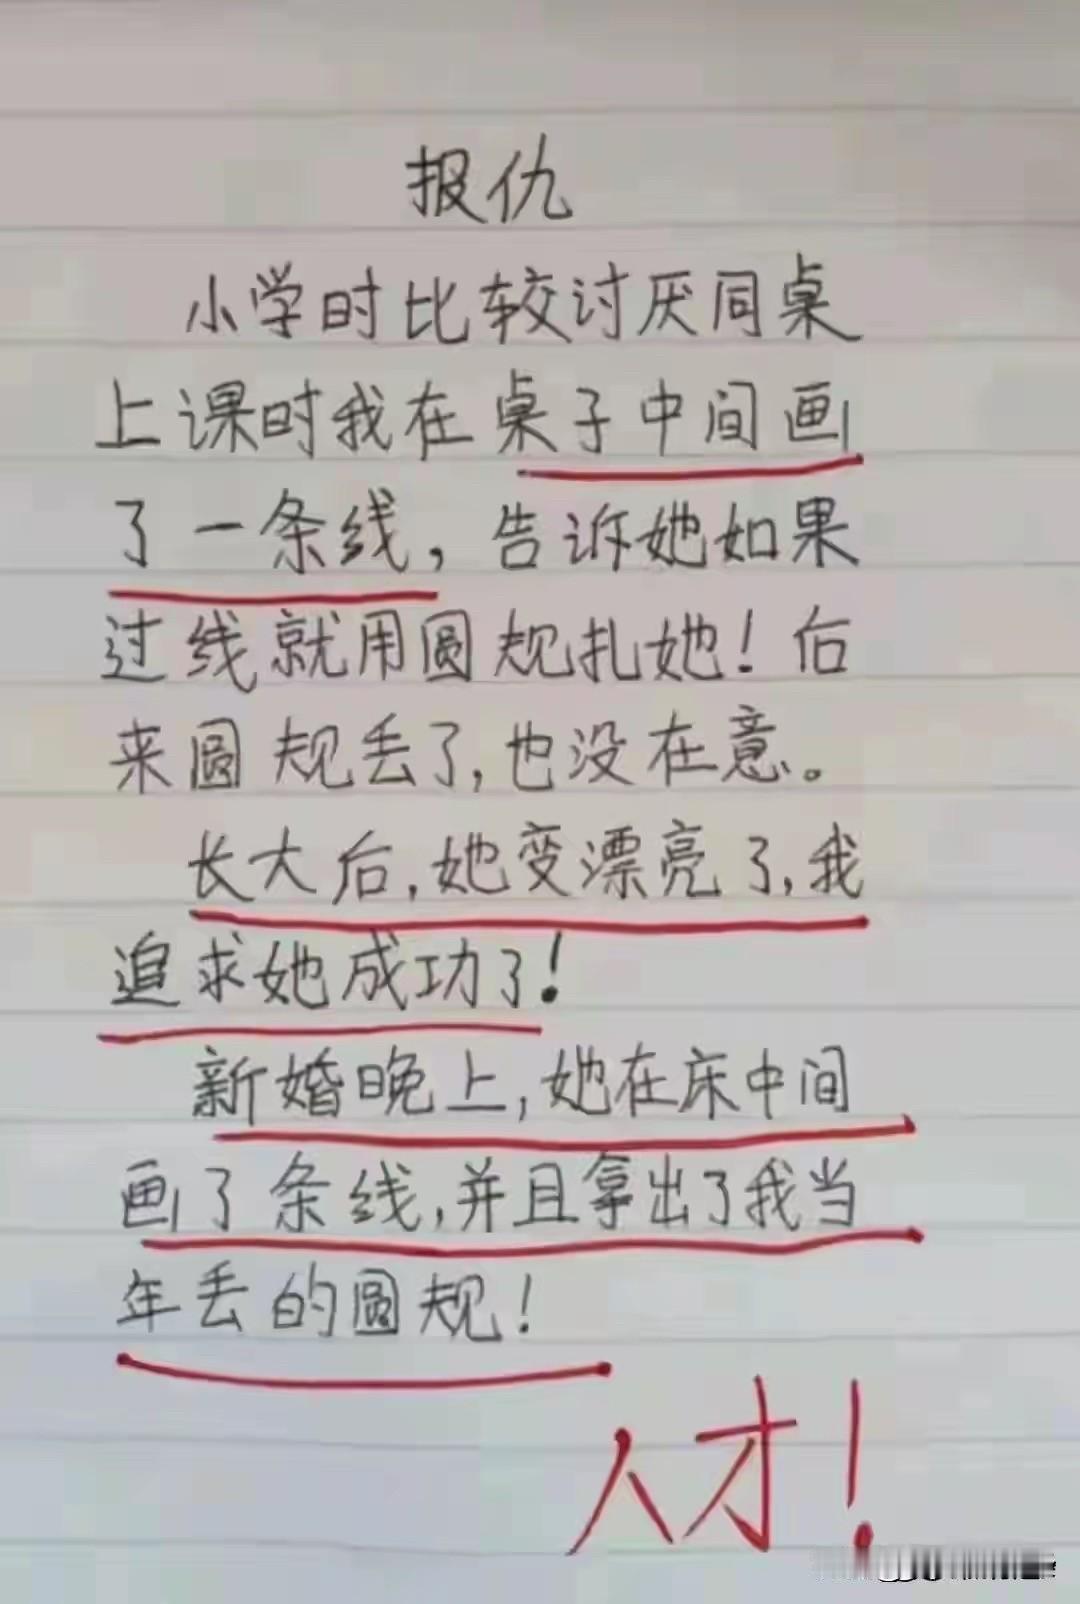 报仇
小学时比较讨厌同桌
上课时我在桌子中间画
了一条线，告诉她如果
过线就用圆规扎她！后
来圆规丢了，也没在意。
长大后，她变漂亮了，我
追求她成功了！
新婚晚上，她在床中间
画了条线，并且拿出了我当
年丢的圆规！
人才！